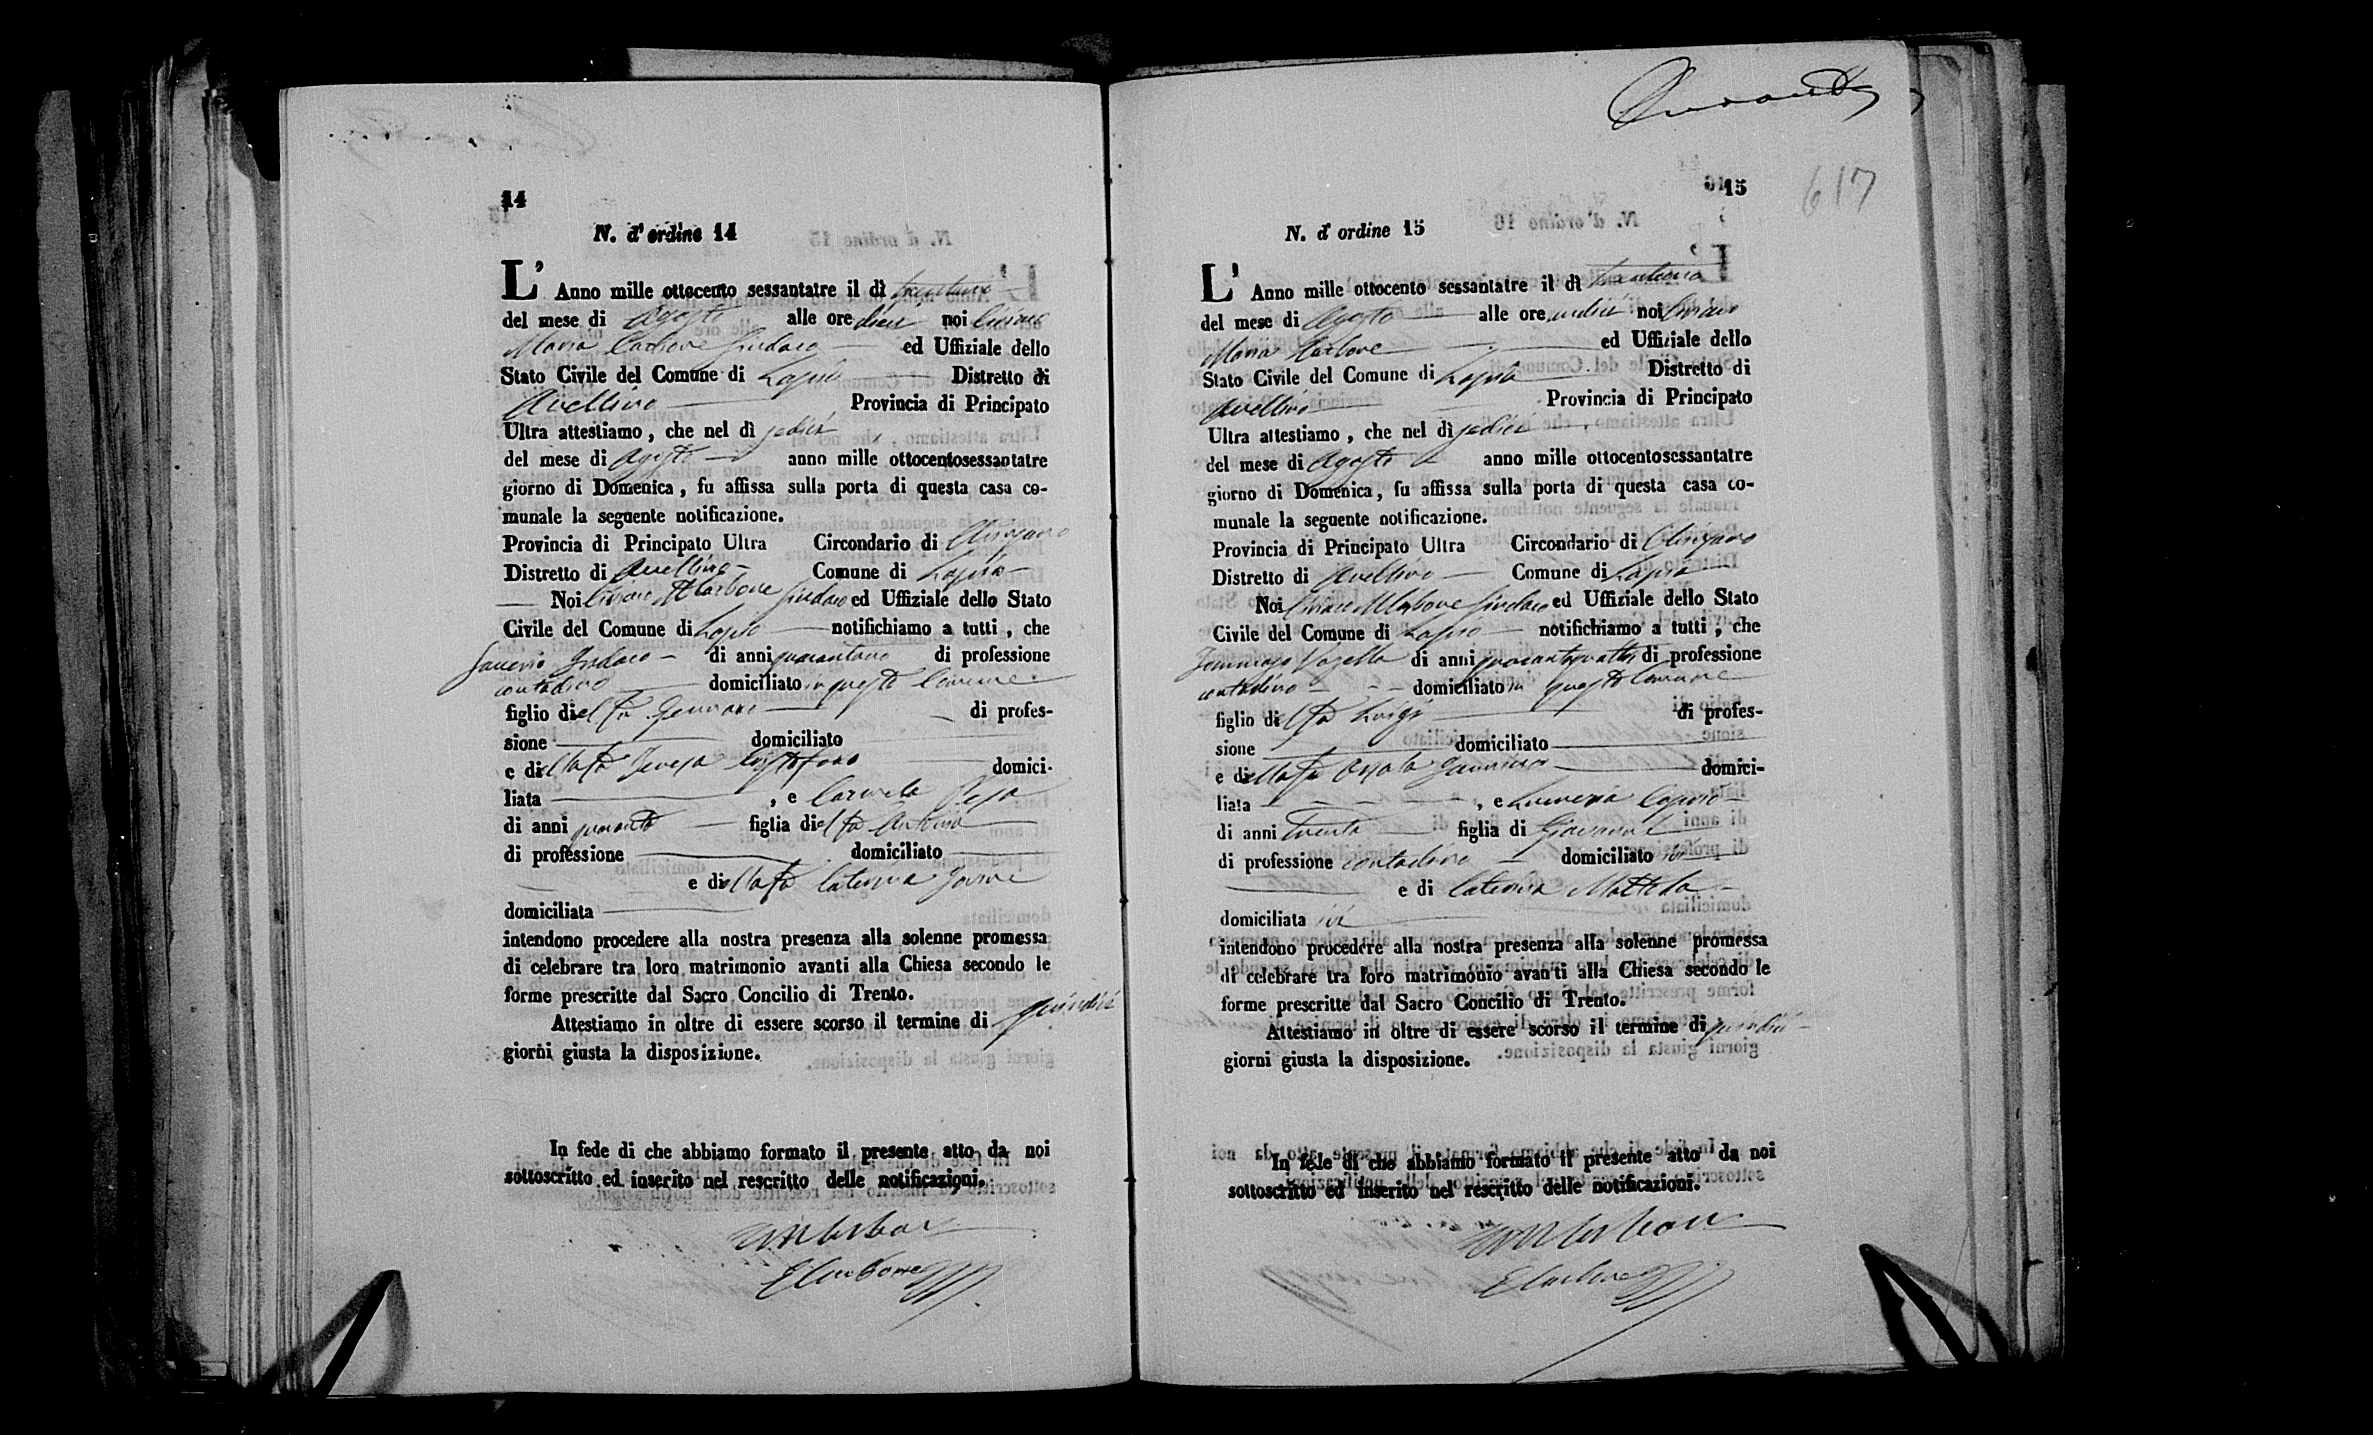 14
N. d' ordine 14
L' Anno mille ottocento sessantatre il dì trentuno
del mese di Agosto alle ore dieci noi Ciriaco
Maria Carbone Sindaco ed Uffiziale dello
Stato Civile del Comune di Lapio Distretto di
Avellino Provincia di Principato
Ultra attestiamo, che nel dì sedici
del mese di Agosto anno mille ottocentosessantatre
giorno di Domenica, fu affissa sulla porta di questa casa co-
munale la seguente notificazione.
Provincia di Principato Ultra Circondario di
Distretto di Avellino Comune di Lapio
Noi Ciriaco M Carbone Sindaco ed Uffiziale dello Stato
Civile del Comune di Lapio notifichiamo a tutti, che
Saverio di anni di professione
contadino domiciliato in questo Comune
figlio del fu Gennaro di profes-
sione domiciliato
e di ella fu Teresa domici-
liata , e Carmela
di anni quaranta figlia di el fu Antonio
di professione domiciliato
e di ella fu Caterina
domiciliata
intendono procedere alla nostra presenza alla solenne promessa
di celebrare tra loro matrimonio avanti alla Chiesa secondo le
forme prescritte dal Sacro Concilio di Trento.
Attestiamo in oltre di essere scorso il termine di quindici
giorni giusta la disposizione.
In fede di che abbiamo formato il presente atto da noi
sottoscritto ed inserito nel rescritto delle notificazioni.
E Carbone
15
617
N. d' ordine 15
L' Anno mille ottocento sessantatre il dì trentuno
del mese di Agosto alle ore undici noi Ciriaco
Maria Carbone ed Uffiziale dello
Stato Civile del Comune di Lapio Distretto di
Avellino Provincia di Principato
Ultra attestiamo, che nel dì sedici
del mese di Agosto anno mille ottocentosessantatre
giorno di Domenica, fu affissa sulla porta di questa casa co-
munale la seguente notificazione.
Provincia di Principato Ultra Circondario di
Distretto di Avellino Comune di Lapio
Noi Ciriaco M Carbone Sindaco ed Uffiziale dello Stato
Civile del Comune di Lapio notifichiamo a tutti, che
Tommaso di anni quarantaquattro di professione
contadino domiciliato in questo Comune
figlio del fu Luigi di profes-
sione domiciliato
e di ella fu domici-
liata , e
di anni trenta figlia di Giovanni
di professione contadino domiciliato ivi
e di Caterina
domiciliata ivi
intendono procedere alla nostra presenza alla solenne promessa
di celebrare tra loro matrimonio avanti alla Chiesa secondo le
forme prescritte dal Sacro Concilio di Trento.
Attestiamo in oltre di essere scorso il termine di quindici
giorni giusta la disposizione.
In fede di che abbiamo formato il presente atto da noi
sottoscritto ed inserito nel rescritto delle notificazioni.
E Carbone